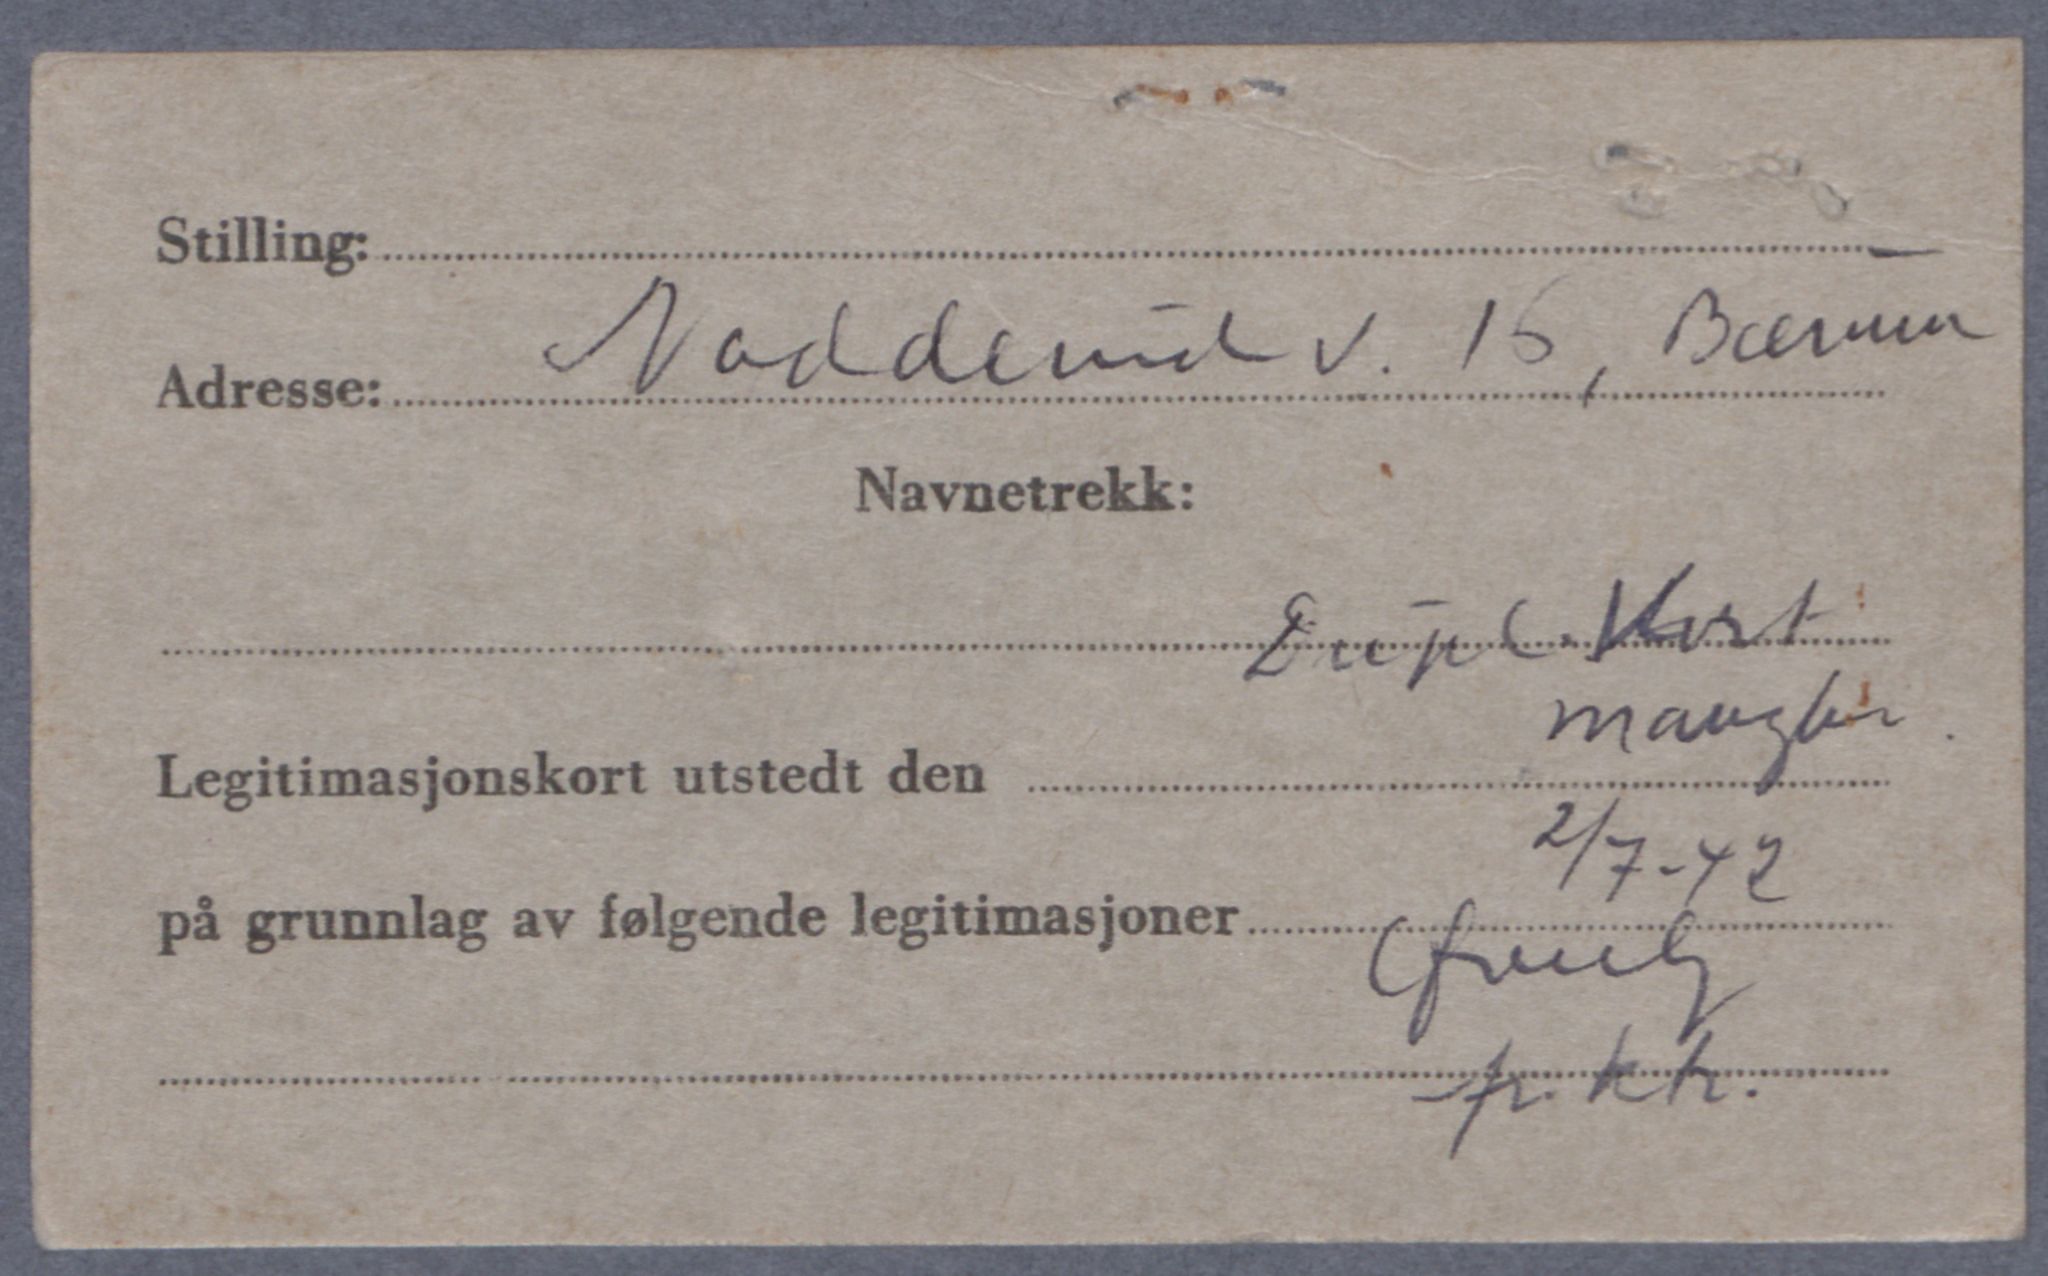 Stilling:
Adresse: Nadderud v. 15, Bærum
Navnetrekk:
Dupl. Kort
mangler.
Legitimasjonskort utstedt den
2/7-42
på grunnlag av følgende legitimasjoner
p. kh.